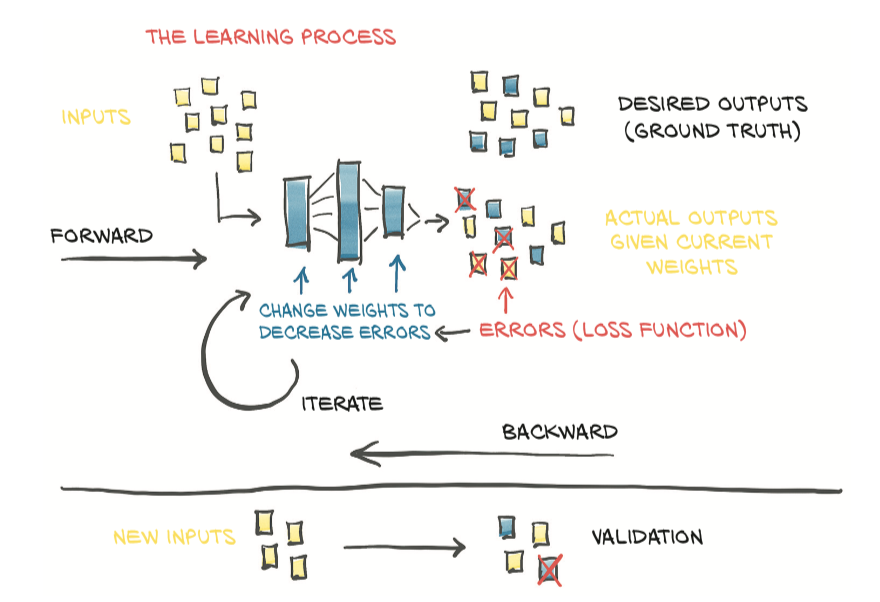 THE LEARNING PROCESS
INPUTS
DESIRED OUTPUTS
(GROUND TRUTH)
FORWARD
ACTUAL OUTPUTS
GIVEN CURRENT
WEIGHTS
CHANGE WEIGHTS TO
DECREASE ERRORS
ERRORS (LOSS FUNCTION)
ITERATE
BACKWARD
NEW INPUTS
VALIDATION